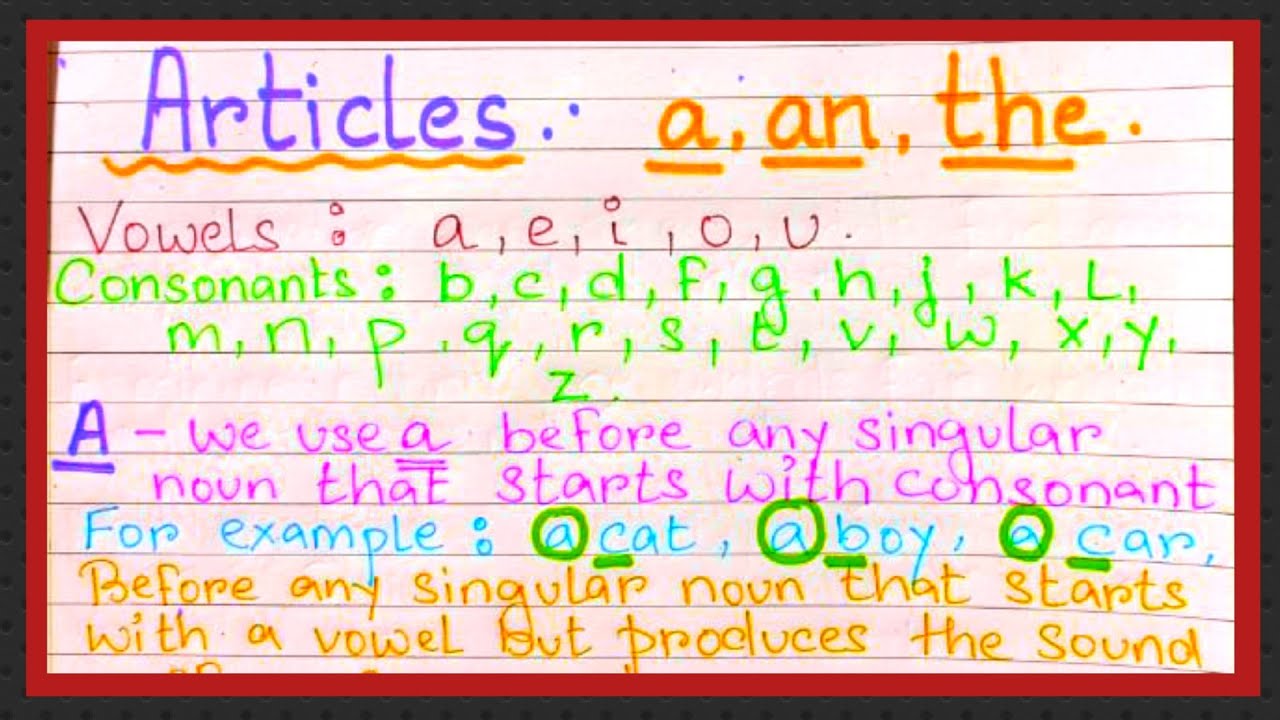 Articles: a, an, the.
Vowels : a, e, i, o, u.
Consonants : b, c, d, f, g, h, j, k, L,
m, n, p, q, r, s, t, v, w, x, y,
z.
A - we use a before any singular
noun that starts with consonant
For example : a cat, a boy, a car,
Before any singular noun that starts
with a vowel but produces the sound